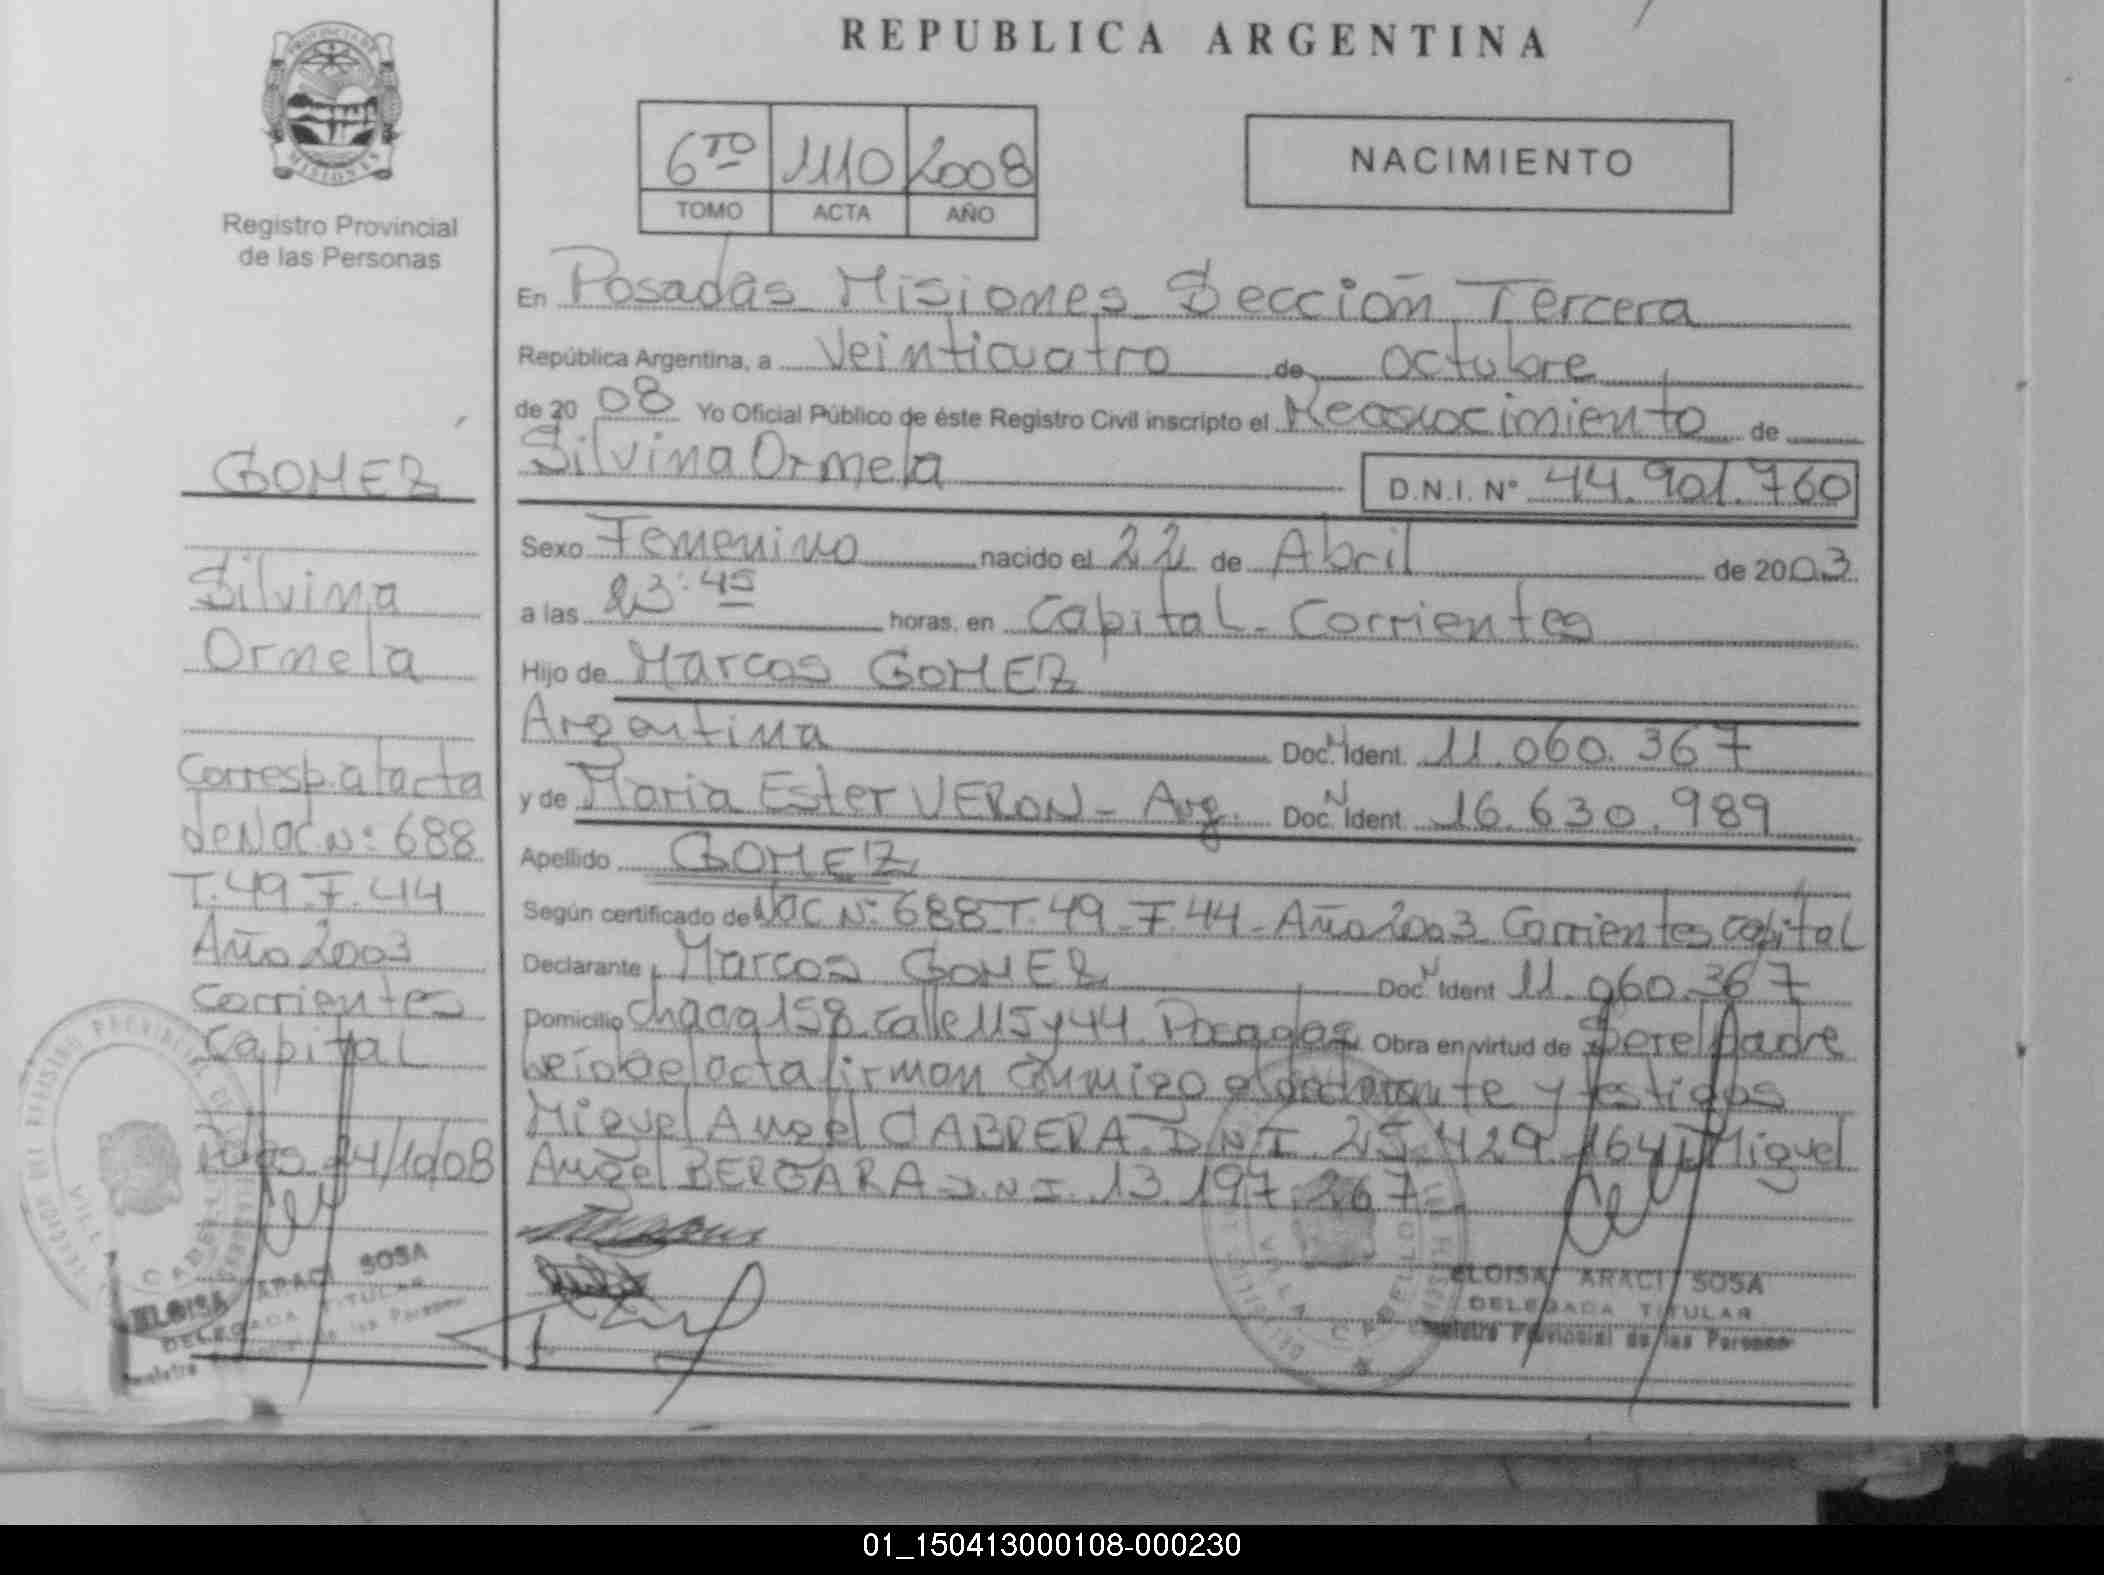 REPUBLICA ARGENTINA
PROVINCIA DE
MISIONES
Registro Provincial
de las Personas
6TO 1110 2008
TOMO ACTA AÑO
NACIMIENTO
En Posadas Misiones Sección Tercera
República Argentina, a Veinticuatro de octubre
de 2008 Yo Oficial Público de éste Registro Civil inscripto el Reconocimiento de
Silvina Ormela
D.N.I. N° 44.901.760
Sexo Femenino nacido el 22 de Abril de 2003
a las 23:45 horas, en Capital - Corrientes
Hijo de Marcos GOMEZ
Argentina Doc. N Ident. 11.060.367
y de Maria Ester VERON - Arg. Doc. N Ident. 16.630.989
Apellido GOMEZ
Según certificado de Nac N: 688 T. 49 - F. 44 - Año 2003 Corrientes capital
Declarante Marcos GOMEZ Doc. N Ident 11.060.367
Domicilio chacra 158 calle 115 y 44 Posadas Obra en virtud de Ser el Padre
Leída el acta firman conmigo el declarante y testigos
Miguel Angel CABRERA. D.N.I. 25.429.164 y Miguel
Angel BERGARA D.N.I. 13.197.267.
ELOISA ARACI SOSA
DELEGADA TITULAR
Registro Provincial de las Personas
GOMEZ
Silvina
Ormela
Corresp. al acta
de Nac N: 688
T. 49 F. 44
Año 2003
Corrientes
Capital
24/10/08
ELOISA ARACI SOSA
DELEGADA TITULAR
01_150413000108-000230